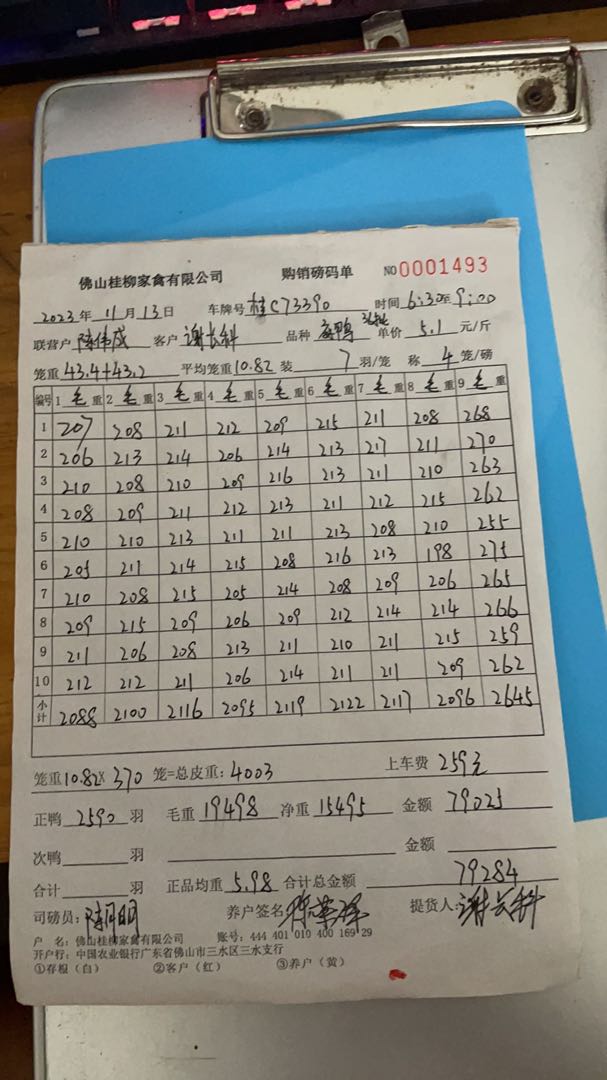 佛山桂柳家禽有限公司 购销磅码单 NO 0001493
2023 年 11 月 13 日 车牌号 桂C73390 时间 6:30至9:00
联营户 陈伟成 客户 谢长科 品种 鸭 单价 5.1 元/斤
笼重 43.4+43.2 平均笼重 10.82 装 7 羽/笼 称 4 笼/磅
编号 1 毛重 2 毛重 3 毛重 4 毛重 5 毛重 6 毛重 7 毛重 8 毛重 9 毛重
1 207 208 211 212 209 215 211 208 268
2 206 213 214 206 214 213 217 211 270
3 210 208 210 209 216 213 211 210 263
4 208 209 211 212 213 211 212 215 262
5 210 210 213 211 211 213 208 210 255
6 205 211 214 215 208 216 213 198 275
7 210 208 215 205 214 208 209 206 265
8 209 215 209 206 209 212 214 214 266
9 211 206 208 213 211 210 211 215 259
10 212 212 211 206 214 211 211 209 262
小计 2088 2100 2116 2095 2119 2122 2117 2096 2645
笼重 10.82 X 370 笼=总皮重: 4003 上车费 259元
正鸭 2590 羽 毛重 19498 净重 15495 金额 79025
次鸭 羽 金额
合计 羽 正品均重 5.98 合计总金额 79284
司磅员: 养户签名 提货人: 谢长科
户 名: 佛山桂柳家禽有限公司 账号: 444 401 010 400 169 29
开户行: 中国农业银行广东省佛山市三水区三水支行
①存根（白） ②客户（红） ③养户（黄）